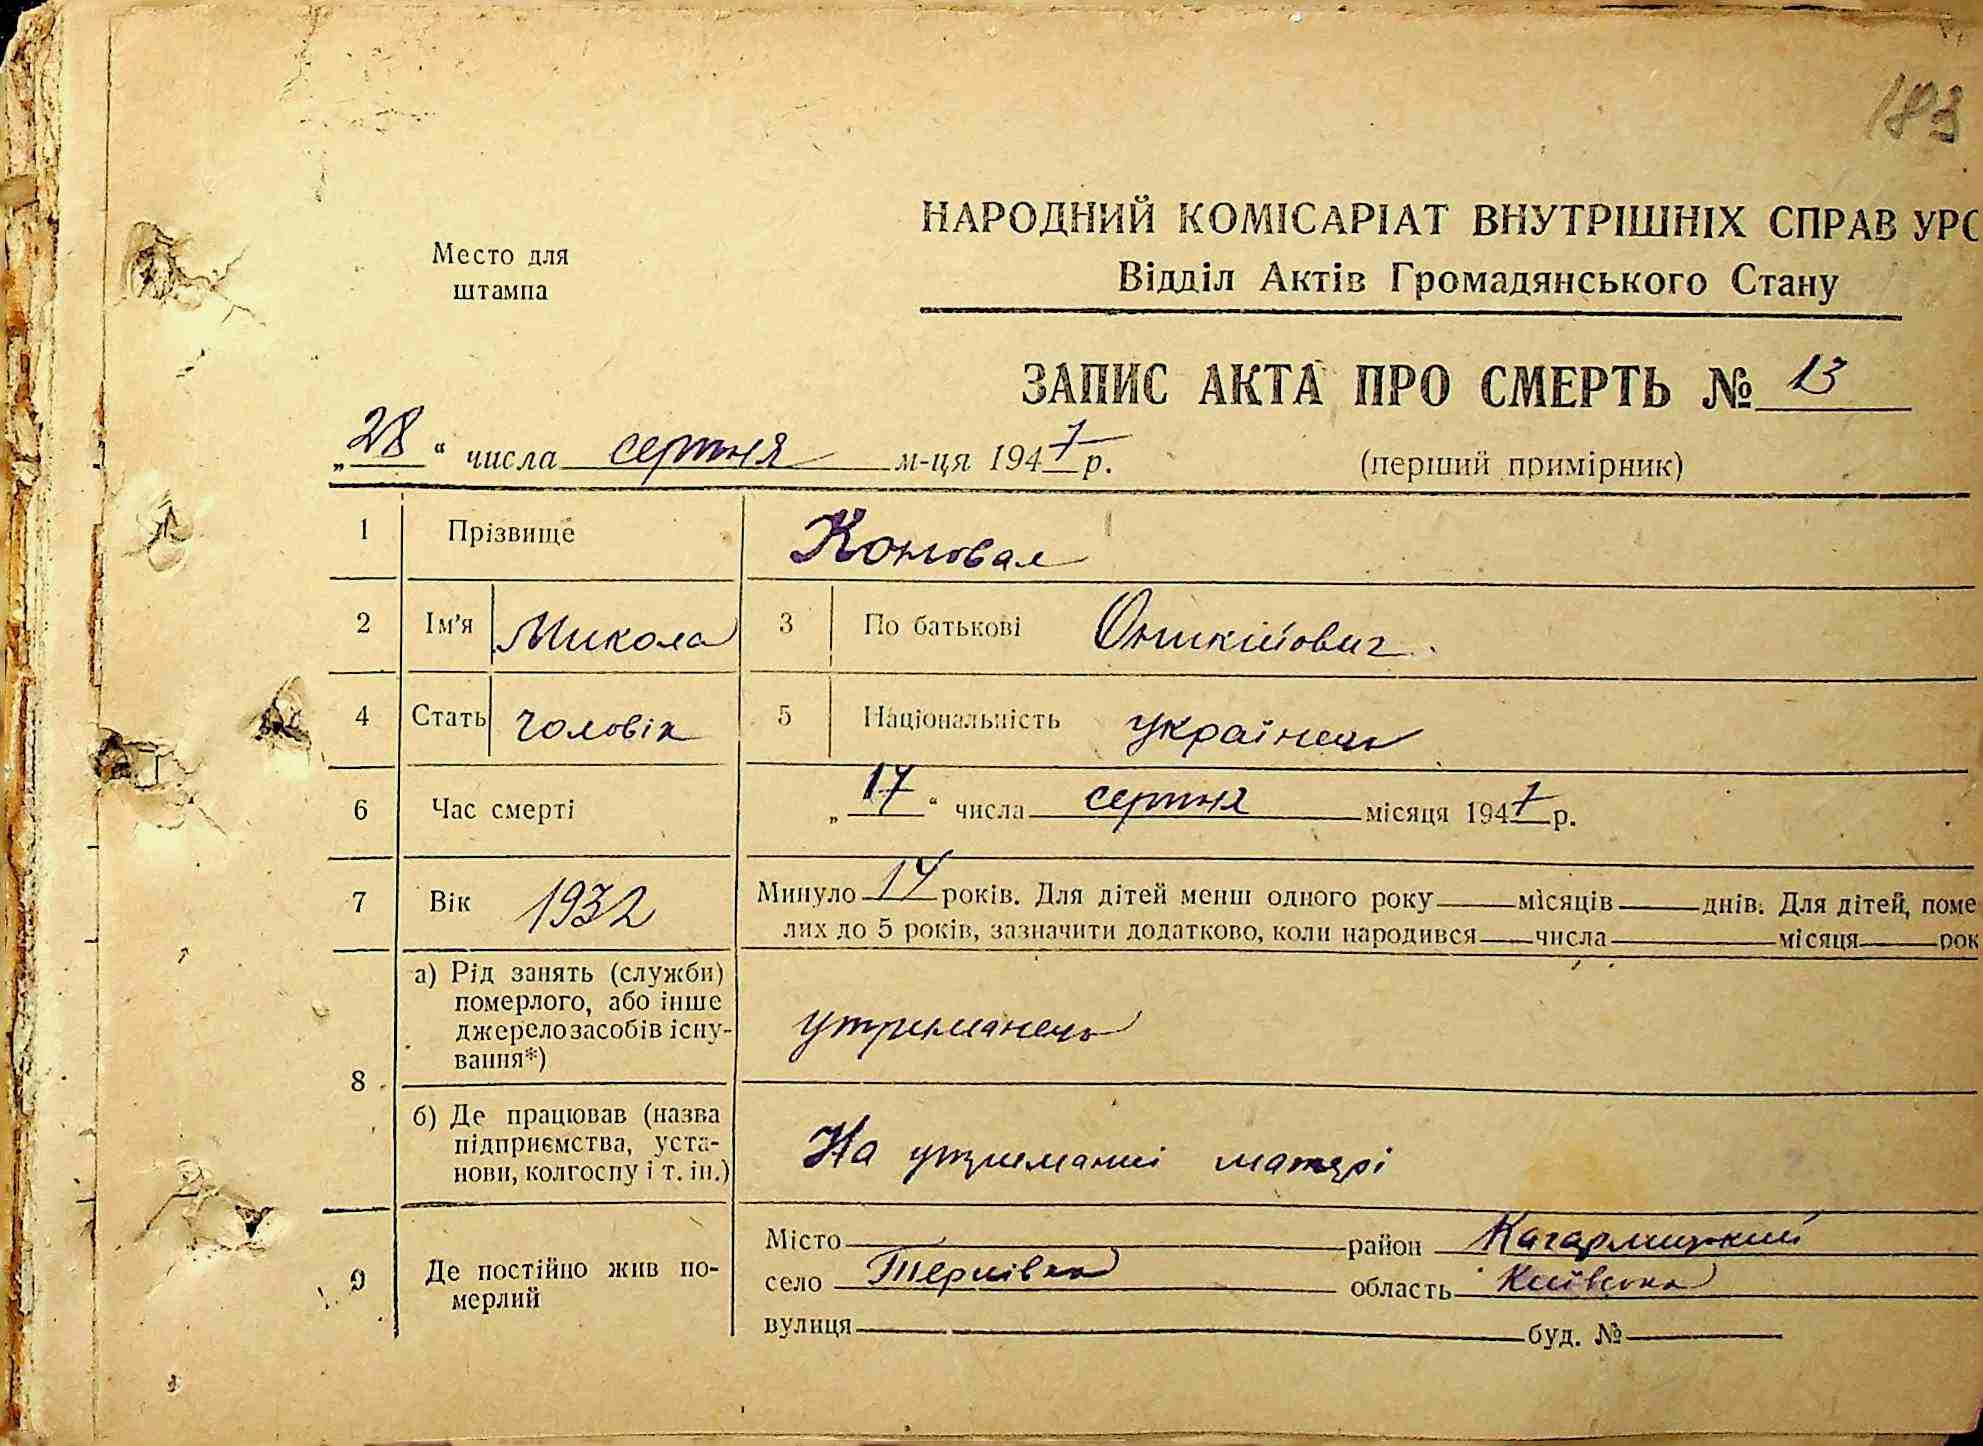 183
НАРОДНИЙ КОМІСАРІАТ ВНУТРІШНІХ СПРАВ УРС
Место для штампа
Відділ Актів Громадянського Стану
ЗАПИС АКТА ПРО СМЕРТЬ № 13
„28“ числа серпня м-ця 1947 р. (перший примірник)
1 Прізвище Коновал
2 Ім'я Микола 3 По батькові Оникійович
4 Стать чоловік 5 Національність українець
6 Час смерті „17“ числа серпня місяця 1947 р.
7 Вік 1932 Минуло 14 років. Для дітей менш одного року місяців днів. Для дітей, поме
лих до 5 років, зазначити додатково, коли народився числа місяця рок
8 а) Рід занять (служби)
померлого, або інше
джерело засобів існу-
вання*)
утриманець
б) Де працював (назва
підприємства, уста-
нови, колгоспу і т. ін.)
На утриманні матері
9 Де постійно жив по-
мерлий
Місто район Кагарлицький
село Тернівка область Київська
вулиця буд. №